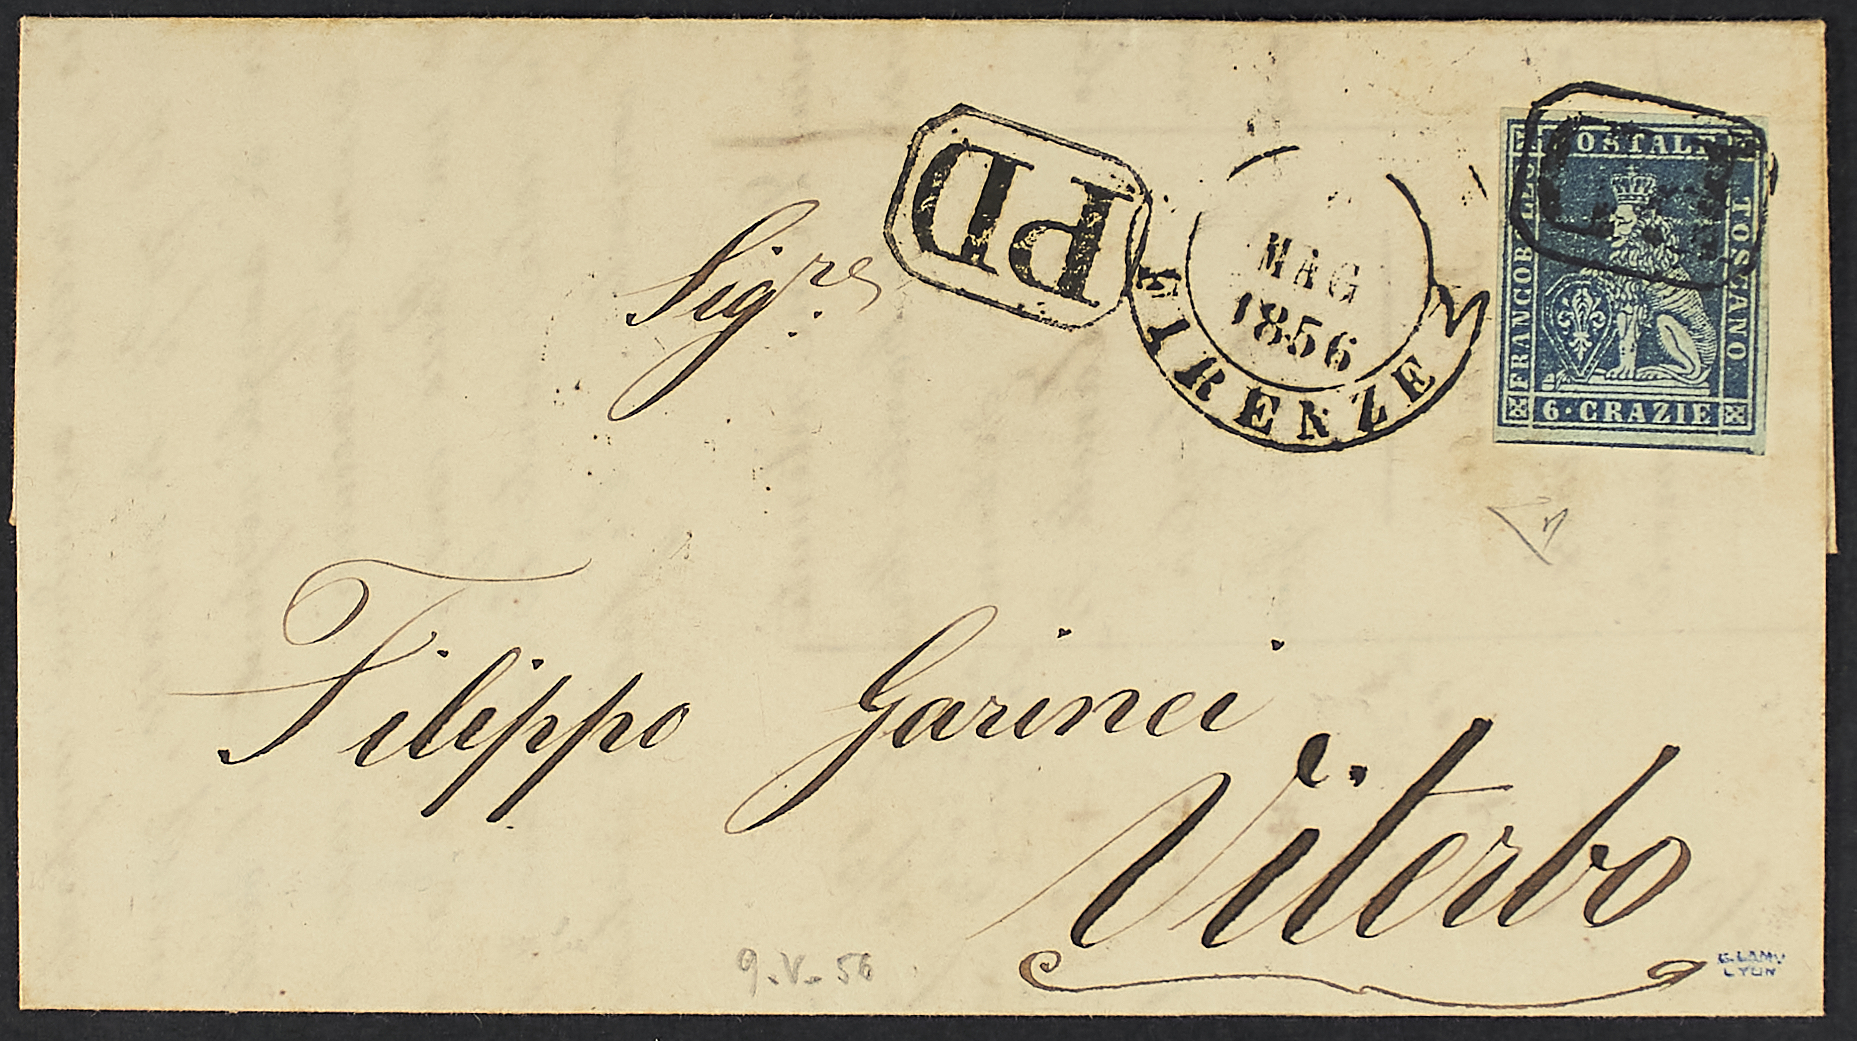 PD
MAG
1856
FIRENZE
FRANCOBOLLO POSTALE TOSCANO
6·CRAZIE
PD
Sigre
Filippo Garinei
Viterbo
9-V-56
LYON